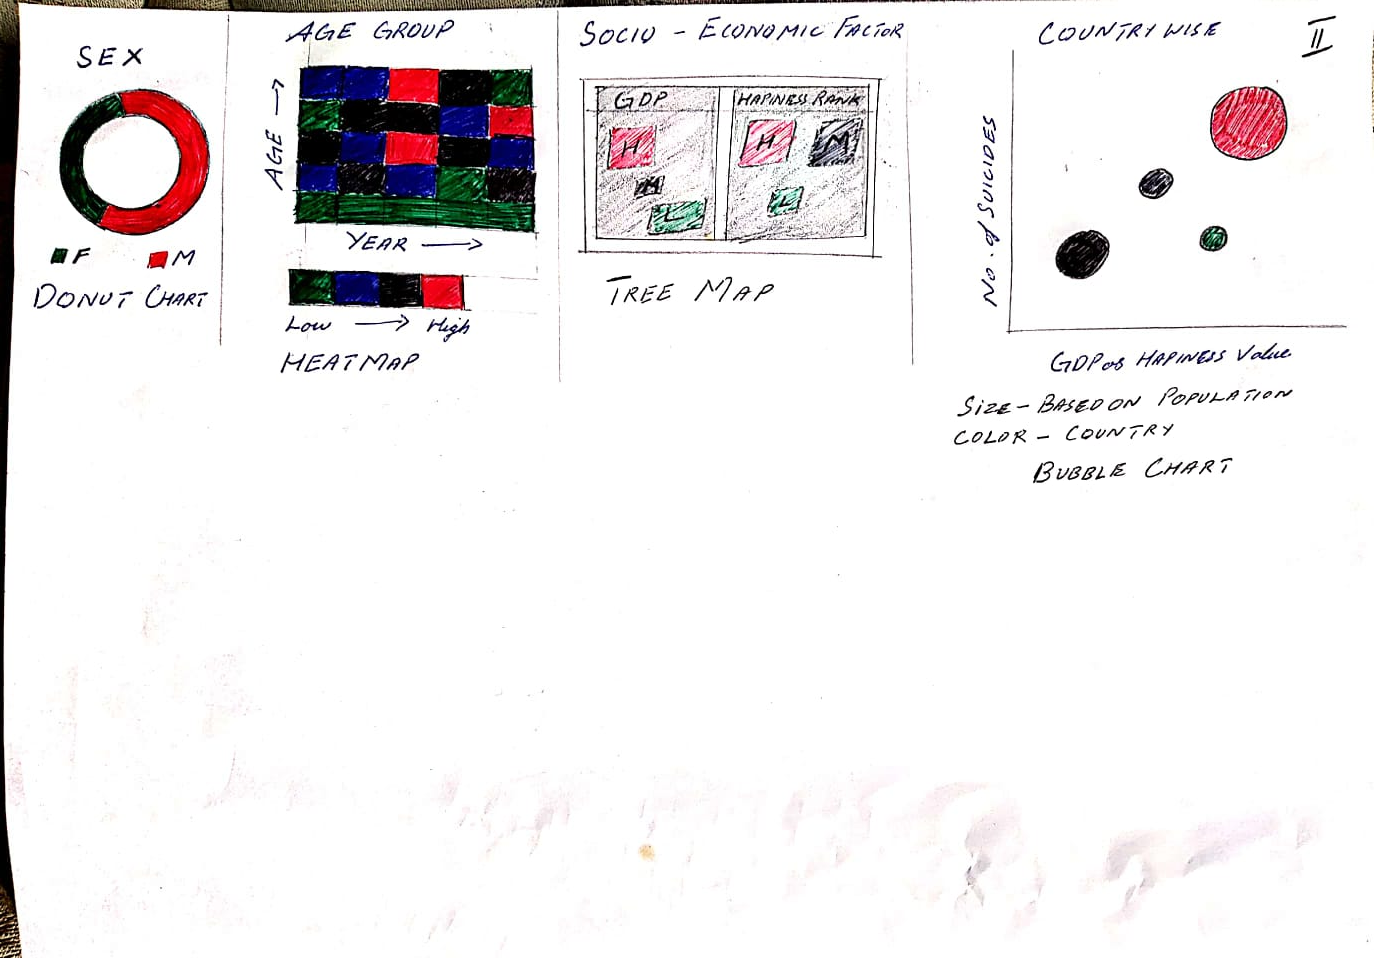 II
SEX
F M
DONUT CHART
AGE GROUP
AGE
YEAR
Low High
HEATMAP
SOCIO - ECONOMIC FACTOR
GDP
H
M
L
HAPINESS RANK
H M
L
TREE MAP
COUNTRYWISE
No. of SUICIDES
GDP or HAPINESS Value
SIZE - BASED ON POPULATION
COLOR - COUNTRY
BUBBLE CHART